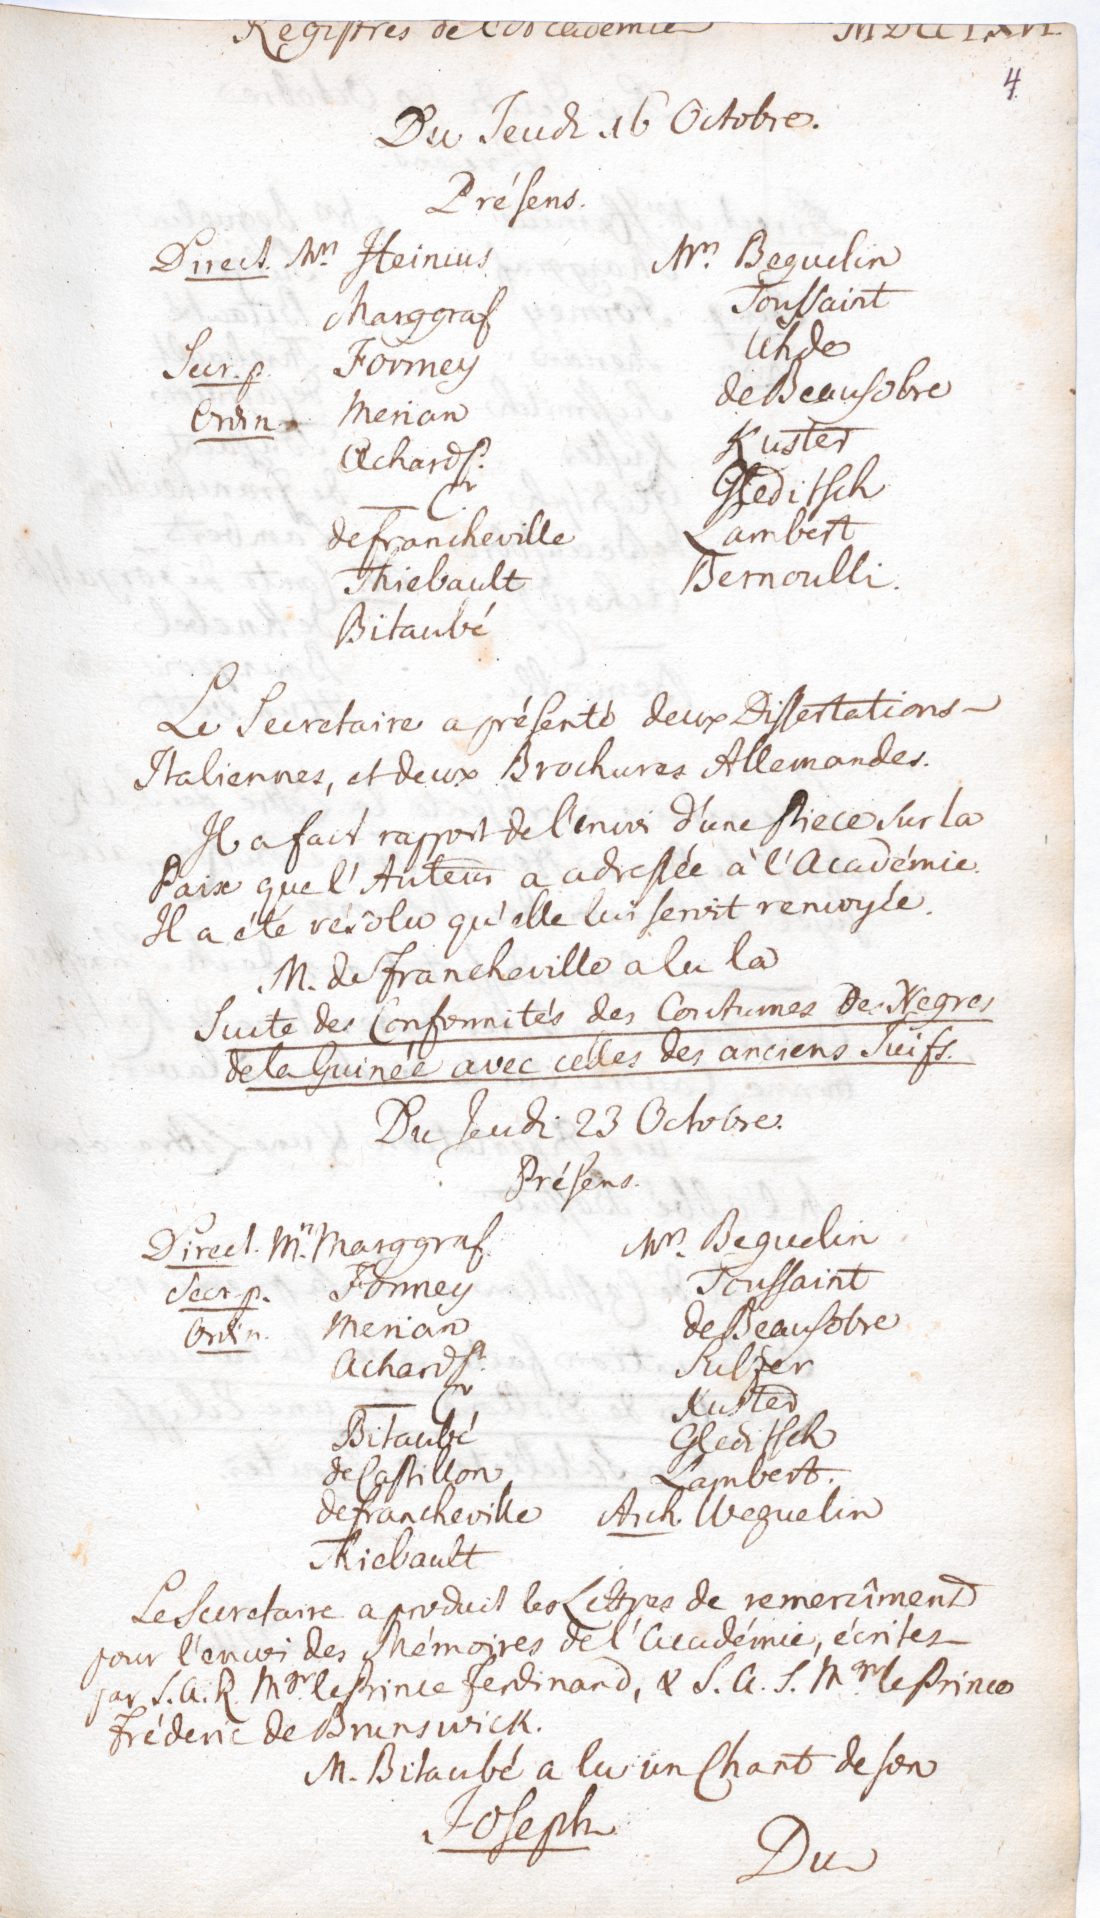 Registres de l'Academie MDCCLXVI.
4
Du Jeudi 16 Octobre.
Présens.
Direct. Mrs Heinius
Marggraf
Secr. p. Formey
Ordin. Merian
Achard Sr.
Cr.
de Francheville
Thiebault
Bitaubé
Mrs. Beguelin
Toussaint
Uhde
de Beausobre
Kuster
Gleditsch
Lambert
Bernoulli.
Le Secretaire a présenté deux Dissertations
Italiennes, et deux Brochures Allemandes.
Il a fait rapport de l'envoi d'une Piece sur la
Paix que l'Auteur a adressée à l'Académie.
Il a été résolu qu'elle lui seroit renvoyée.
M. de Francheville a lu la
Suite des Conformités des Coutumes des Negres
de la Guinée avec celles des anciens Juifs.
Du Jeudi 23 Octobre.
Présens.
Direct. Mrs. Marggraf
Secr. p. Formey
Ordin. Merian
Achard Sr.
Cr.
Bitaubé
de Castillon
de Francheville
Thiebault
Mrs. Beguelin
Toussaint
de Beausobre
Sulzer
Kuster
Gleditsch
Lambert.
Arch. Weguelin
Le Secretaire a produit les Lettres de remercîment
pour l'envoi des Mémoires de l'Académie, écrites
par S. A. R. Mgr. le Prince Ferdinand, & S. A. S. Mgr le Prince
Fréderic de Brunswick.
M. Bitaubé a lu un Chant de son
Joseph
Du